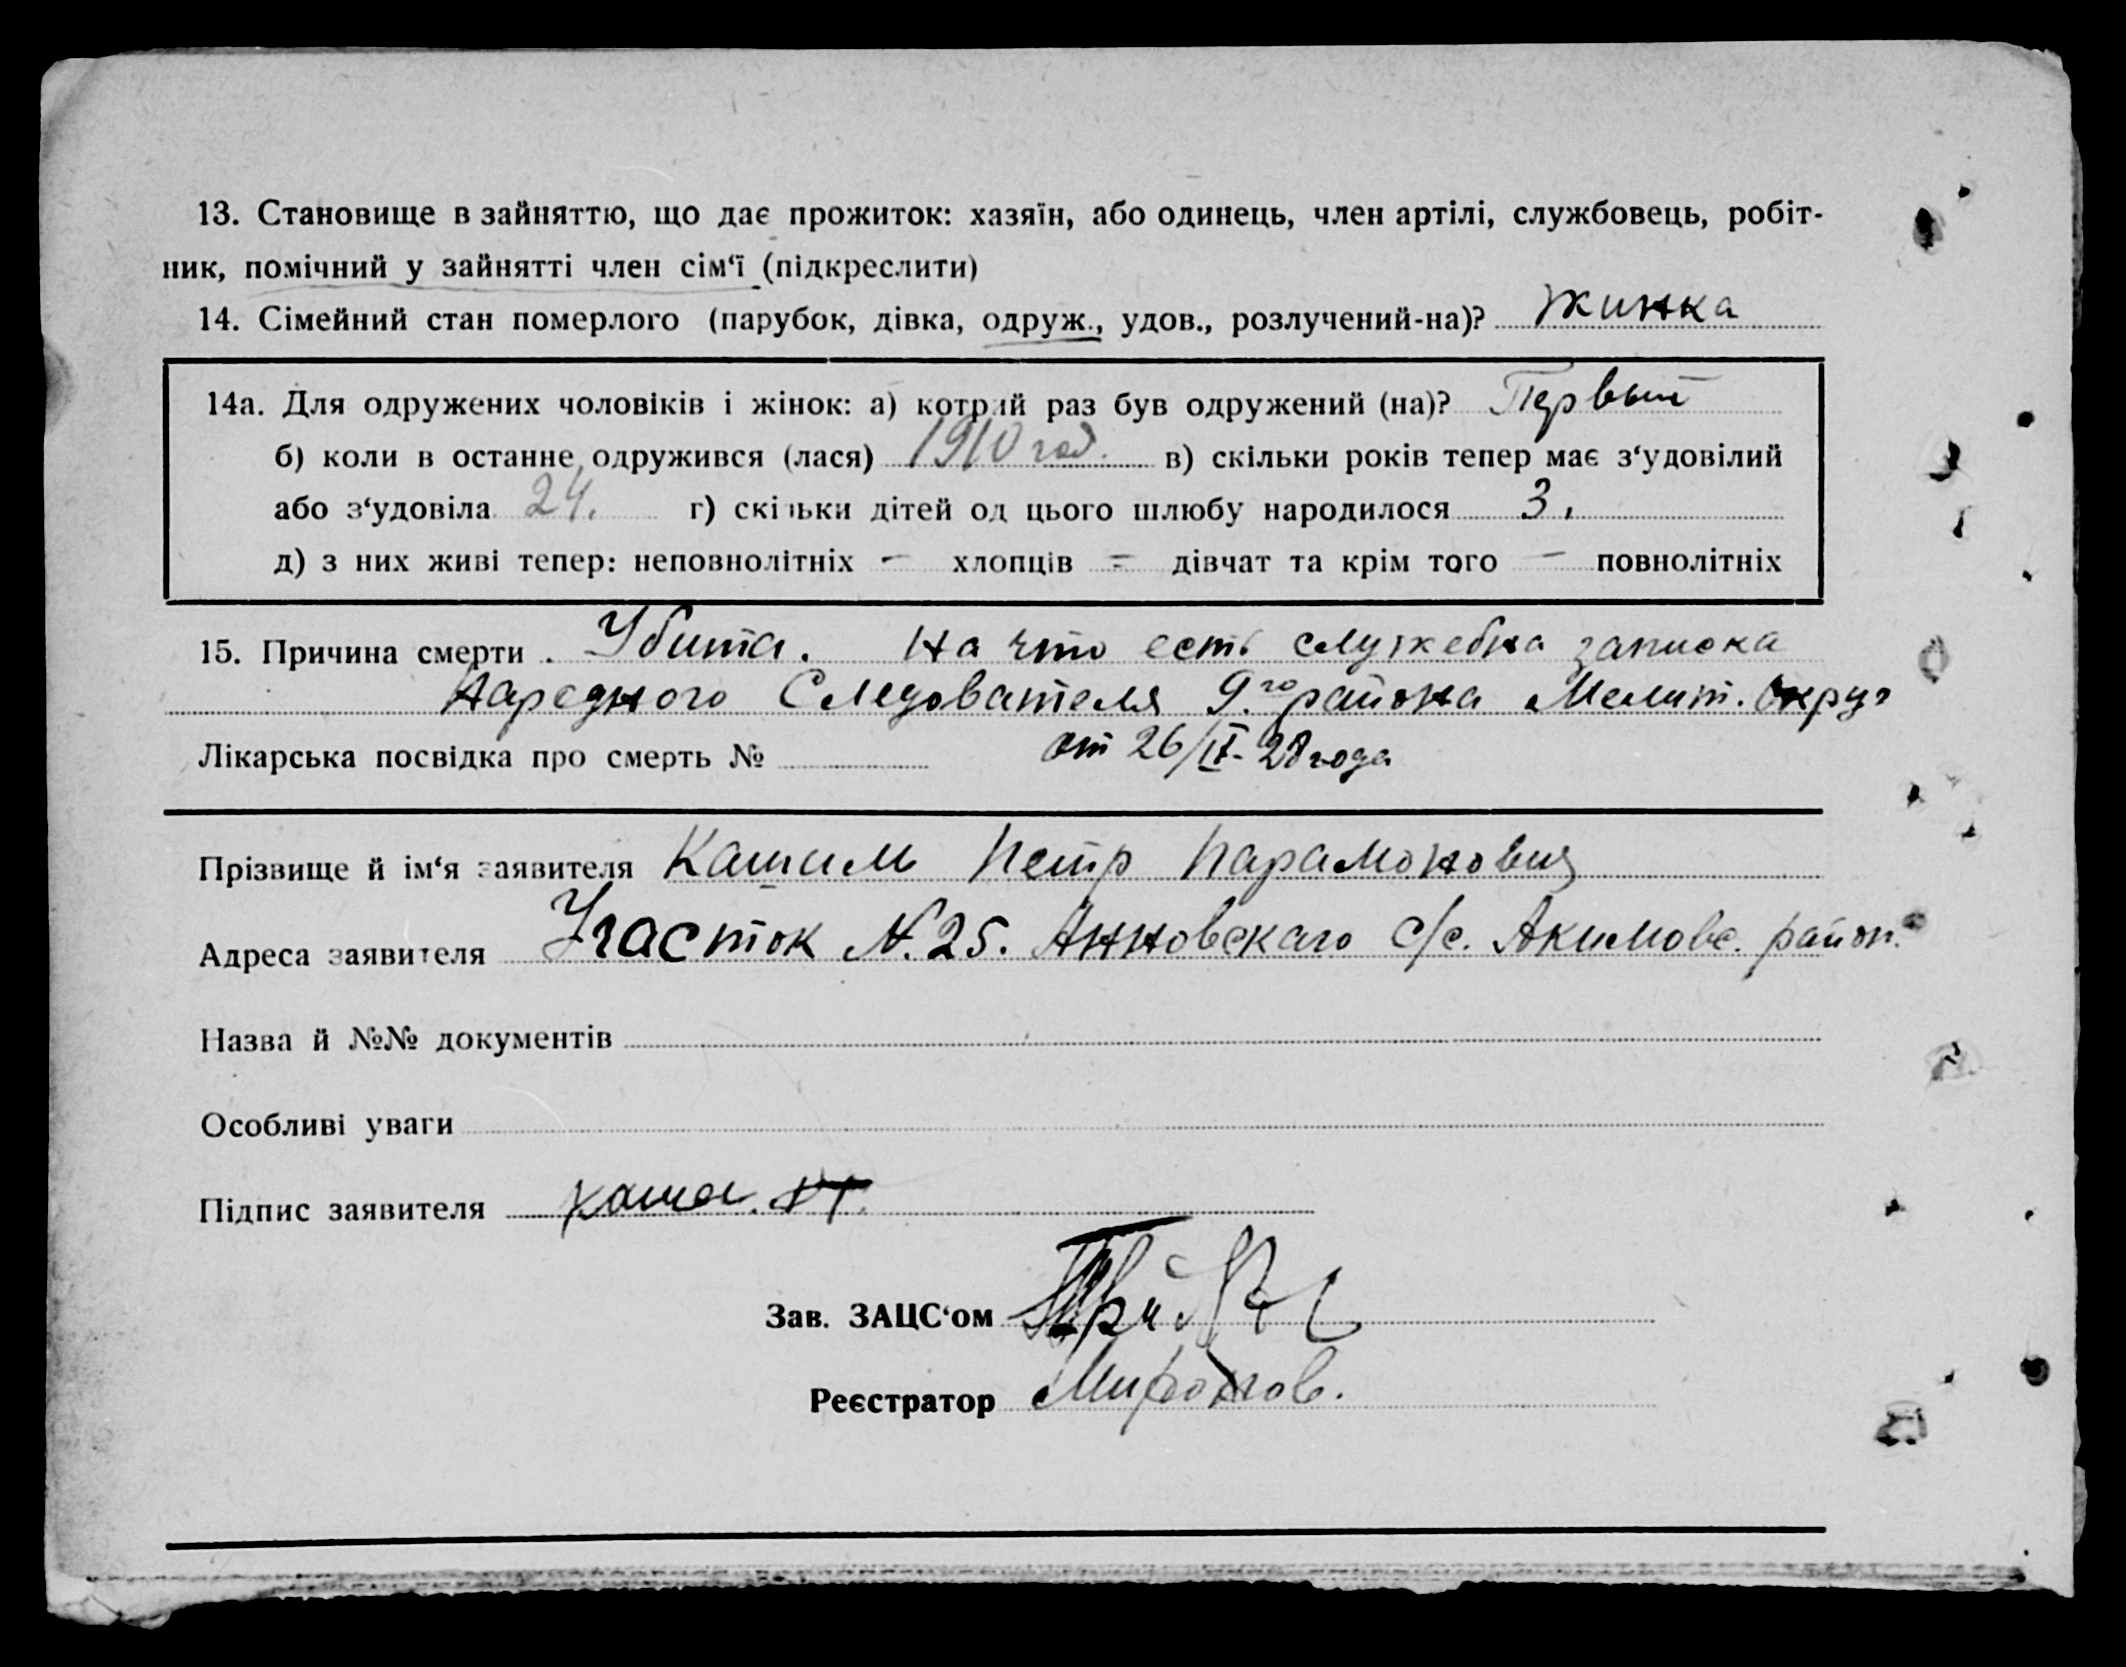 13. Становище в зайняттю, що дає прожиток: хазяїн, або одинець, член артілі, службовець, робіт-
ник, помічний у зайнятті член сім‘ї (підкреслити)
14. Сімейний стан померлого (парубок, дівка, одруж., удов., розлучений-на)? Жинка
14а. Для одружених чоловіків і жінок: а) котрий раз був одружений (на)? Первый
б) коли в останнє одружився (лася) 1910 год. в) скільки років тепер має з‘удовілий
або з‘удовіла 24. г) скільки дітей од цього шлюбу народилося 3.
д) з них живі тепер: неповнолітніх – хлопців = дівчат та крім того – повнолітніх
15. Причина смерти . Убита. На что есть служебна записка
Народного Следователя 9го района Мелит. Округ
Лікарська посвідка про смерть № от 26/IX-28 года
Прізвище й ім‘я заявителя Петр Парамонович
Адреса заявителя Участок N. 25. Анновскаго с/с. Акимовс. район.
Назва й №№ документів
Особливі уваги
Підпис заявителя
Зав. ЗАЦС‘ом
Реєстратор Миронов.